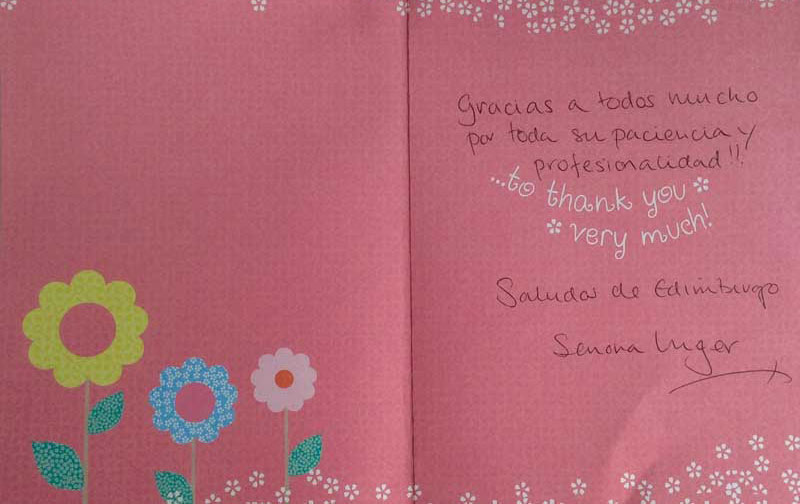 Gracias a todos mucho
por toda su paciencia y
profesionalidad!!
...to thank you
very much!
Saludos de Edimburgo
Senona Luger